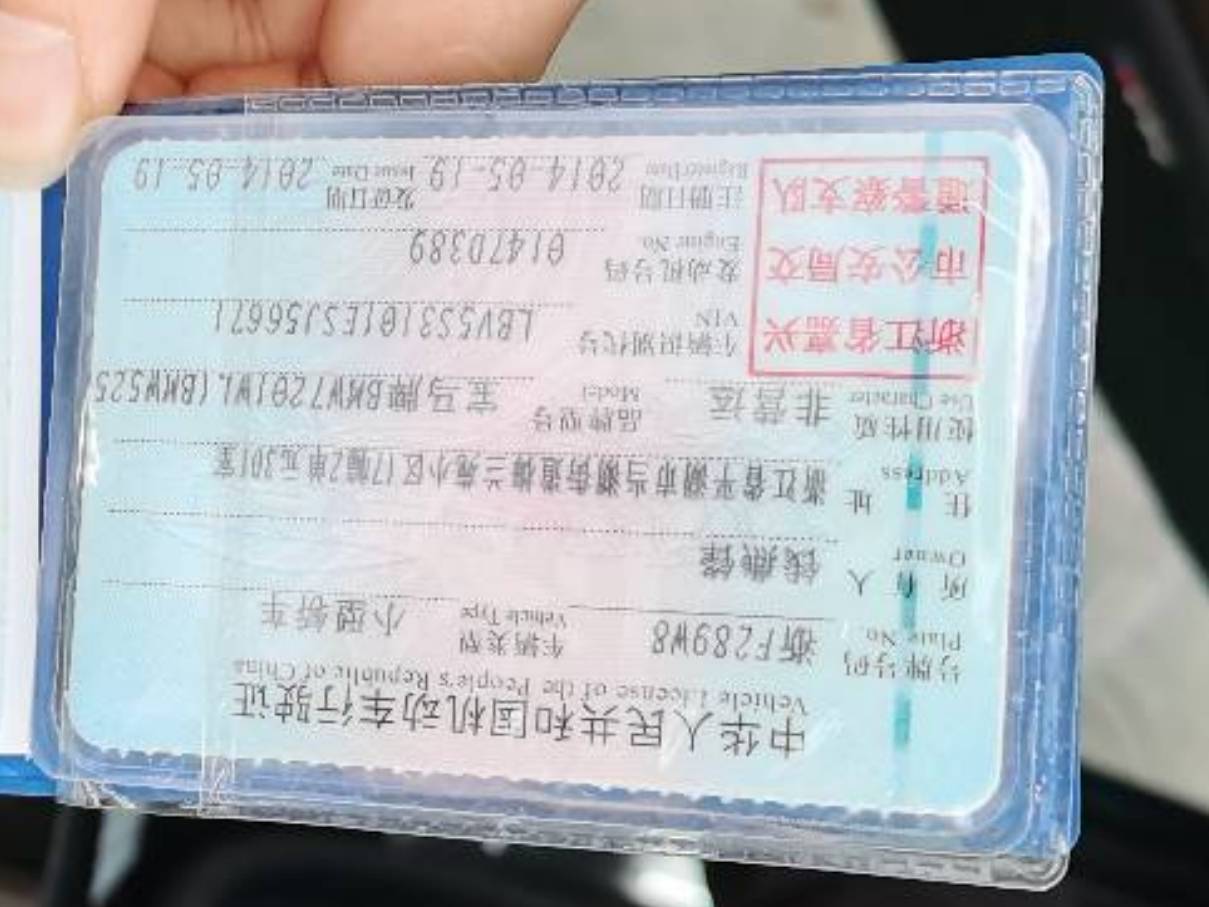 中华人民共和国机动车行驶证
Vehicle License of the People's Republic of China
号牌号码 Plate No. 浙F289W8 车辆类型 Vehicle Type 小型轿车
所有人 Owner 钱燕锋
住址 Address 浙江省平湖市当湖街道梅兰苑小区17幢2单元301室
使用性质 Use Character 非营运 品牌型号 Model 宝马牌BMW7201WL(BMW525
浙江省嘉兴
市公安局交
通警察支队
车辆识别代号 VIN LBV5S3101ESJ56671
发动机号码 Engine No. 0147D389
注册日期 Register Date 2014-05-19 发证日期 Issue Date 2014-05-19